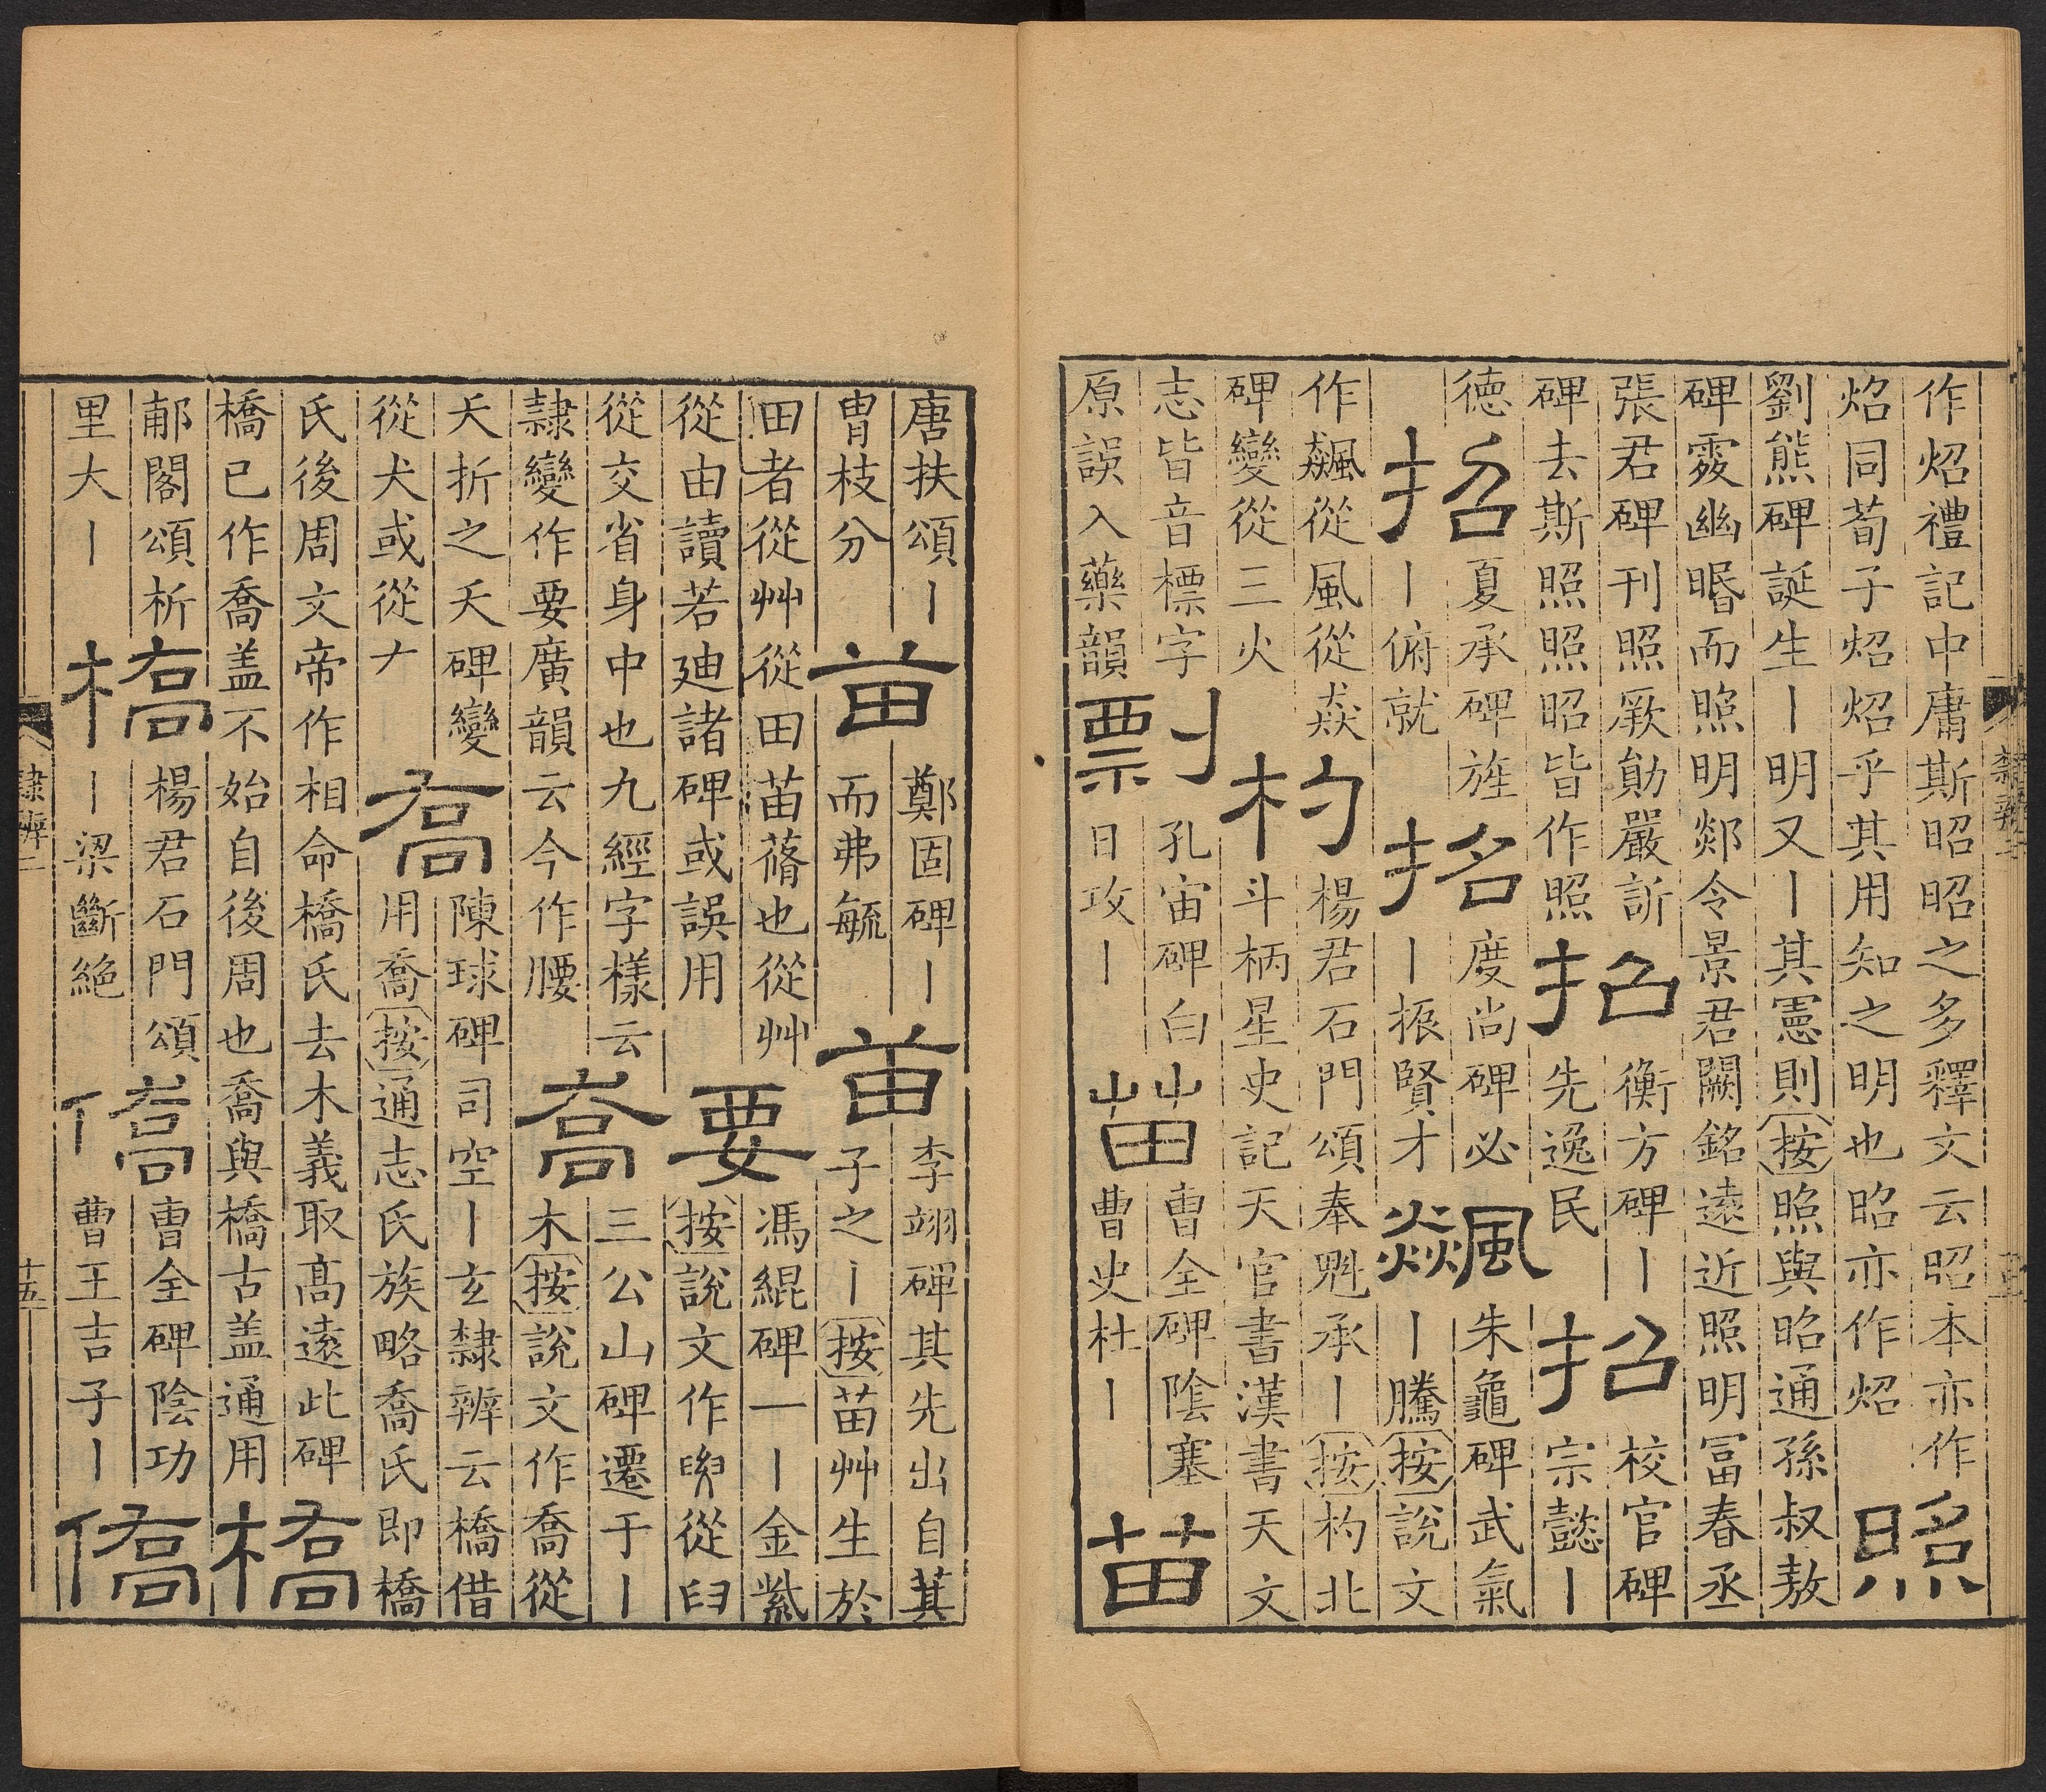 作炤禮記中庸斯昭昭之多釋文云昭本亦作
炤同荀子炤炤乎其用知之明也昭亦作炤
照
劉熊碑誕生丨明又丨其憲則按照與昭通孫叔敖
碑霿幽暱而照明郯令景君闕銘遠近照明冨春丞
張君碑刊照厥勛嚴訢
碑去斯照照昭皆作照
招
衡方碑丨
先逸民
招
校官碑
宗懿丨
德
招
夏承碑旌
丨俯就
招
度尚碑必
丨振賢才
飆
朱龜碑武氣
丨騰按說文
作飆從風從猋
碑變從三火
杓
楊君石門頌奉魁承丨按杓北
斗柄星史記天官書漢書天文
志皆音標字
原誤入藥韻
剽
孔宙碑白
日攻丨
苗
曹全碑陰塞
曹史杜丨
苗
唐扶頌丨
胄枝分
苗
鄭固碑丨
而弗毓
苗
李翊碑其先出自其
子之丨按苗艸生於
田者從艸從田苗蓨也從艸
從由讀若迪諸碑或誤用
要
馮緄碑一丨金紫
按說文作𦥼從𦥑
從交省身中也九經字樣云
隸變作要廣韻云今作腰
喬
三公山碑遷于丨
木按說文作喬從
夭折之夭碑變
從犬或從𠂇
喬
陳球碑司空丨玄隸辨云橋借
用喬按通志氏族略喬氏即橋
氏後周文帝作相命橋氏去木義取高遠此碑
橋已作喬盖不始自後周也喬與橋古盖通用
橋
郙閣頌析
里大丨
橋
楊君石門頌
丨梁斷絕
僑
曹全碑陰功
曹王吉子丨
僑
隸辨二
十五